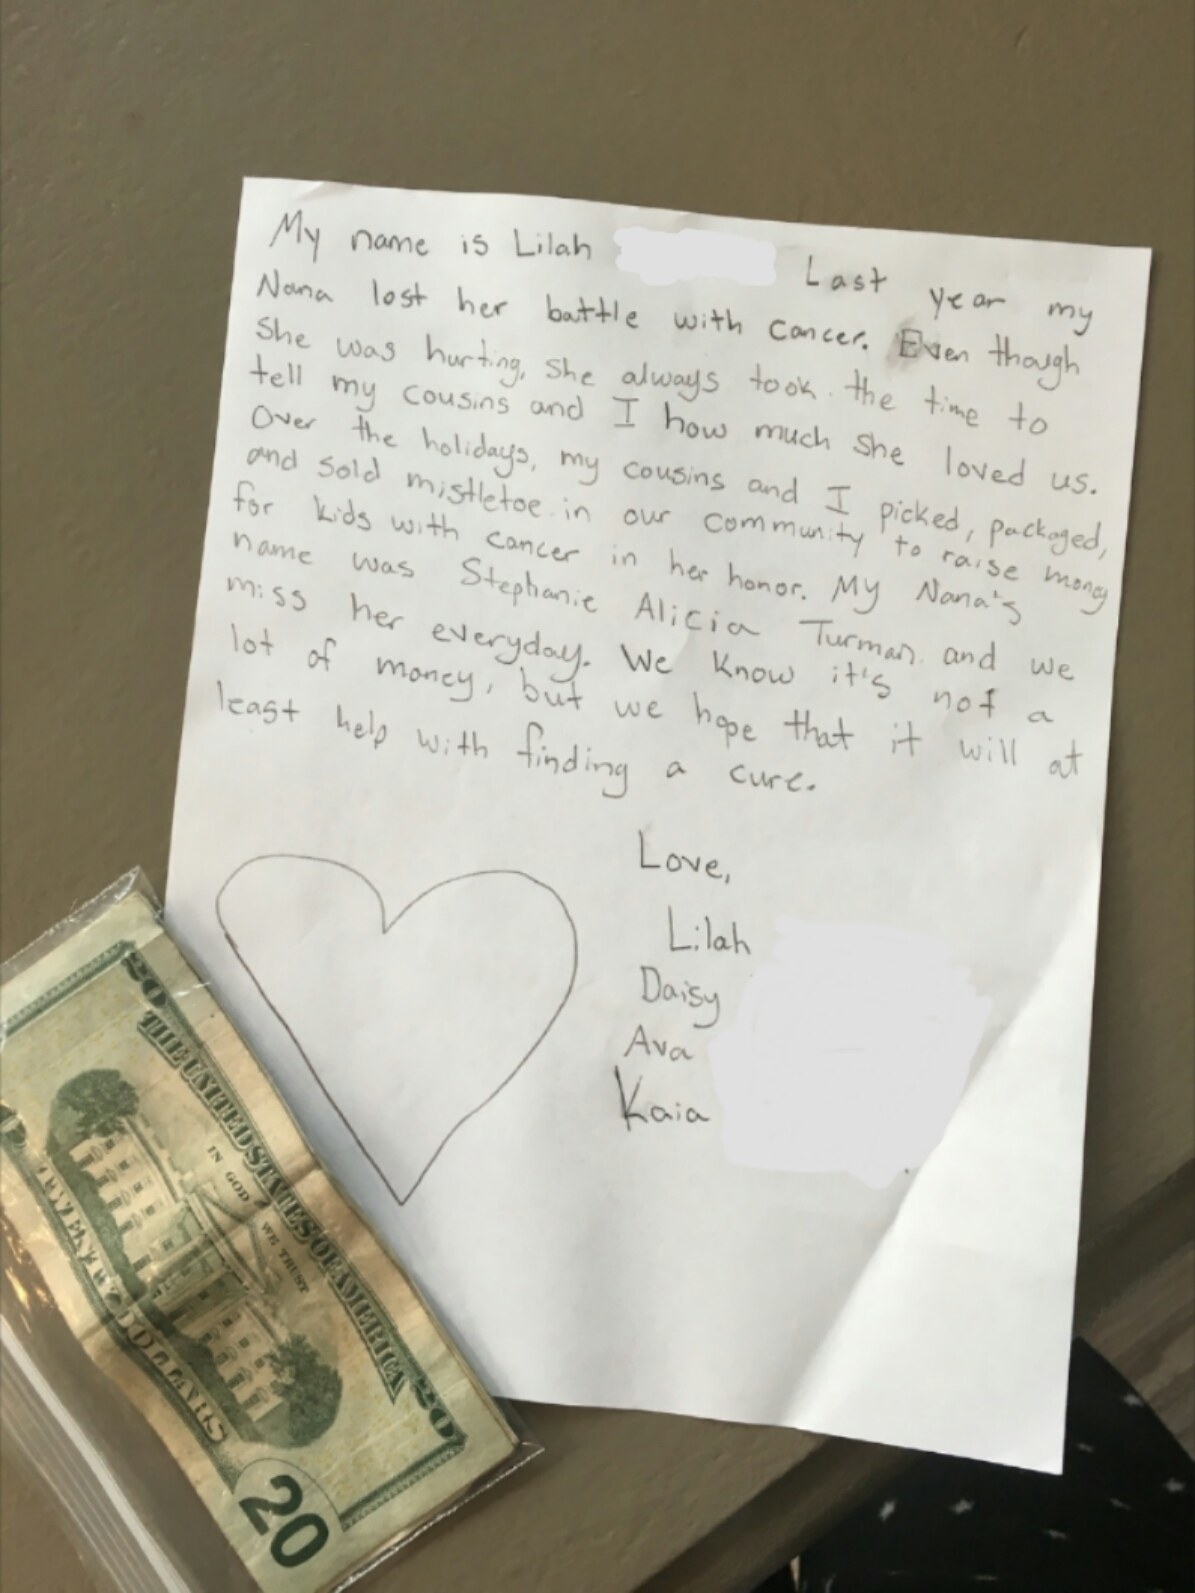 My name is Lilah Last year my
Nana lost her battle with cancer. Even though
she was hurting, she always took the time to
tell my cousins and I how much she loved us.
Over the holidays, my cousins and I picked, packaged,
and sold mistletoe in our community to raise money
for kids with cancer in her honor. My Nana's
name was Stephanie Alicia Turman and we
miss her everyday. We know it's not a
lot of money, but we hope that it will at
least help with finding a cure.
Love,
Lilah
Daisy
Ava
Kaia
20
THE UNITED STATES OF AMERICA
20
IN GOD WE TRUST
TWENTY DOLLARS
20